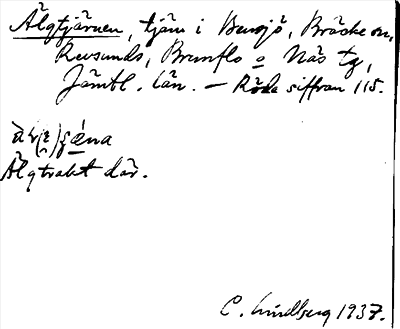 Älgtjärnen, tjärn i Bensjö, Bräcke sn,
Revsunds, Brunflo o Näs tg,
Jämtl. län. — Röda siffran 115.
Älgtrakt där.
C. Lindberg 1937.